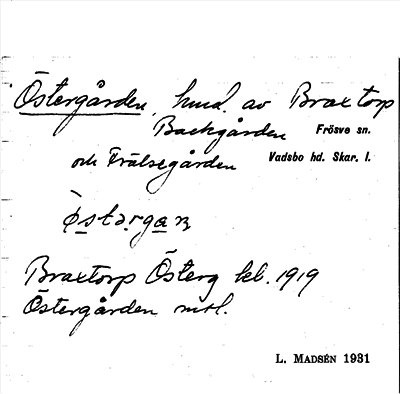 Östergården, hmd. av Braxtorp
Backgården Frösve sn.
och Frälsegården Vadsbo hd. Skar. l.
Braxtorp Österg kbl. 1919
Östergården mtl.
L. MADSÉN 1931